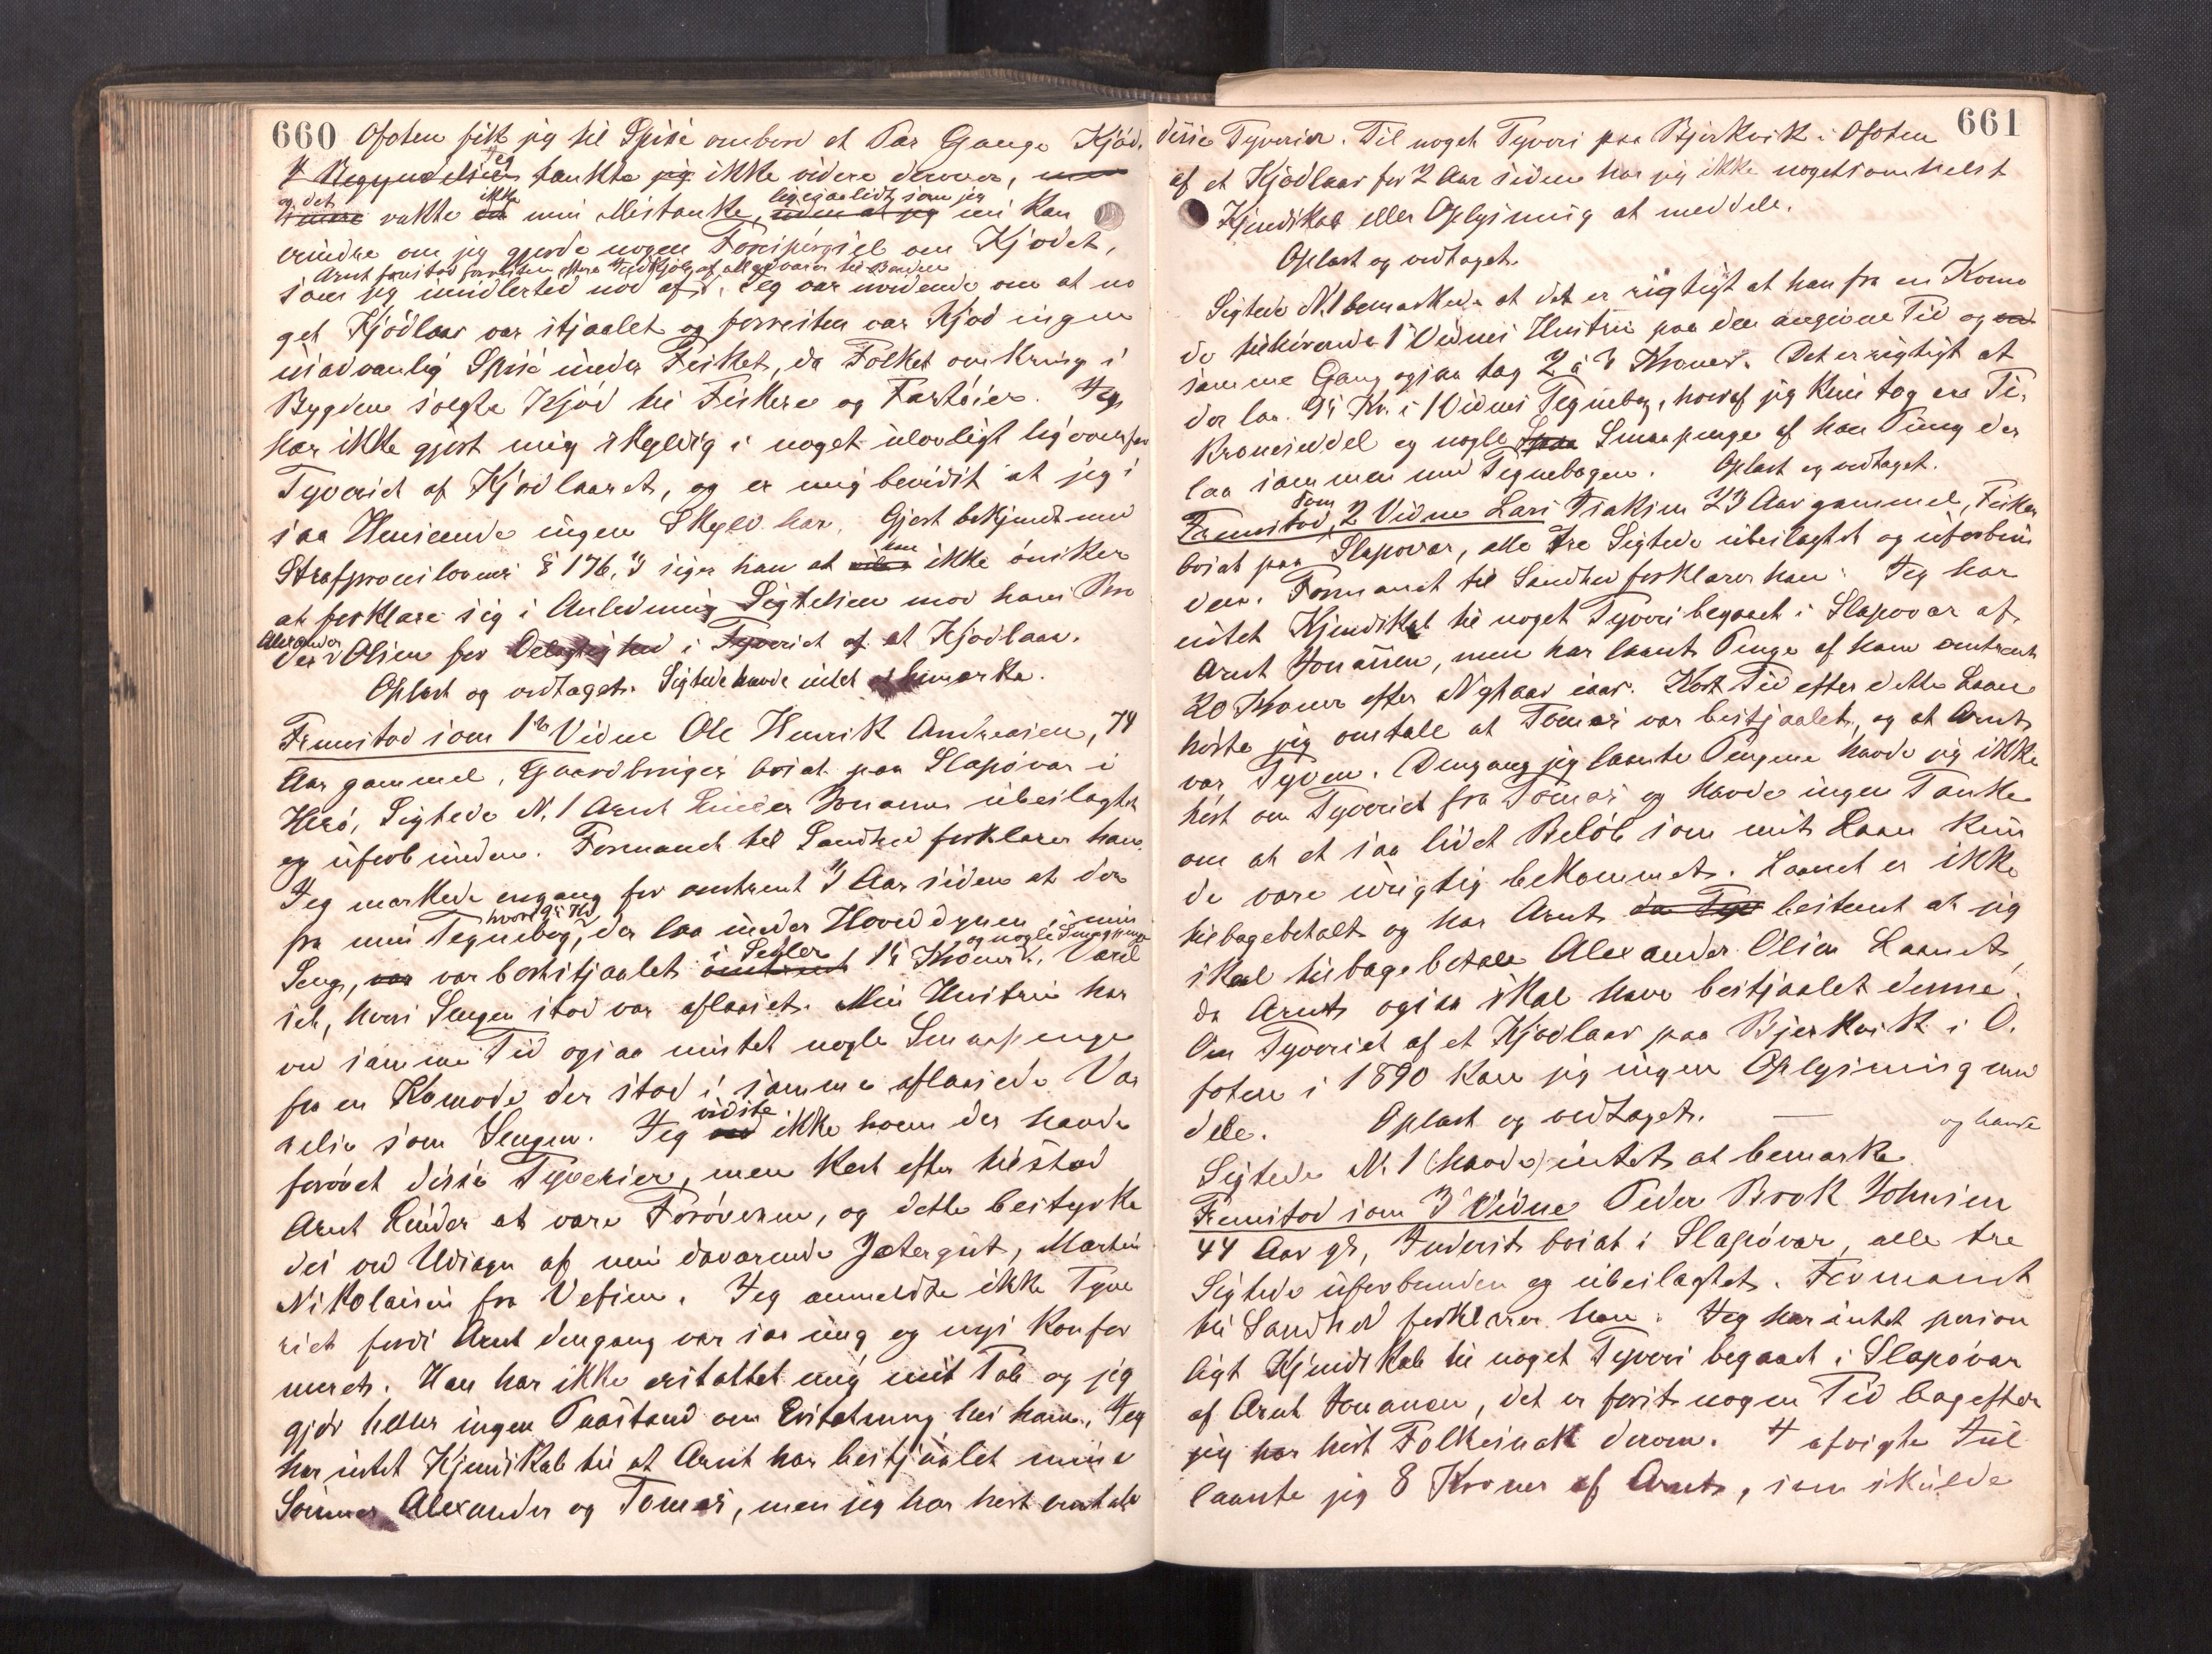 660 Ofoten fik jeg til Spise ombord et Par Gange Kjød.
I Begyndelsen jeg tænkte jeg ikke videre derover, men
og det ikke ligesaalidt som jeg
senere vakte det min Mistanke, uden at jeg nu kan
erindre om jeg gjorde nogen Forespørgsel om Kjødet,
som jeg imidlertid nød af. Jeg var uvidende om at no
get Kjødlaar var stjaalet og forresten var Kjød ingen
usædvanlig Spise under Fisket, da Folket omkring i
Bygden solgte Kjød til Fiskere og Fartøier. Jeg
har ikke gjort mig skyldig i noget ulovligt ligeoverfor
Tyveriet af Kjødlaaret, og er mig bevidst at jeg i
saa Henseende ingen Skyld har. Gjort bekjendt med
Strafproceslovens § 176, 3 siger han at han ikke ønsker
at forklare sig i Anledning Sigtelsen mod hans Bro
Alexander
der Olsen for Delagtighed i Tyveriet af et Kjødlaar.
Oplæst og vedtaget. Sigtede havde intet at bemærke.
Fremstod som 1ste Vidne Ole Henrik Andreasen, 74
Aar gammel, Gaardbruger boiat paa Slapøvær i
Herø, Sigtede N. 1 Arnt Linder Jonassen ubeslægtet
og uforbunden. Formanet til Sandhed forklarer han:
Jeg mærkede engang for omtrent 3 Aar siden at der
hvori 95 Kr
fra min Tegnebog, der laa under Hoveddynen i min
i Sedler og nogle Smaapenge
Seng, var var bortstjaalet omtrent 15 Kroner. Værel
set, hvori Sengen stod var aflaaset. Min Hustru har
ved samme Tid ogsaa mistet nogle Smaapenge
fra en Komode der stod i samme aflaasede Væ
relse som Sengen. Jeg vidste ikke hvem der havde
forøvet disse Tyverier, men kort efter tilstod
Arnt Linder at være Forøveren, og dette bestyrke
des ved Udsagn af min daværende Jætergut, Martin
Nikolaisen fra Vefsen. Jeg anmeldte ikke Tyve
riet fordi Arnt dengang var saa ung og nys konfir
meret. Han har ikke erstattet mig mit Tab og jeg
gjør heller ingen Paastand om Erstatning hos ham. Jeg
har intet Kjendskab til at Arnt har bestjaalet mine
Sønner Alexander og Tomas, men jeg har hørt omtale
661
disse Tyverier. Til noget Tyveri paa Bjerkvik i Ofoten
af et Kjødlaar for 2 Aar siden har jeg ikke nogetsomhelst
Kjendskab eller Oplysning at meddele.
Oplæst og vedtaget.
Sigtede N. 1 bemærkede at det er rigtigt at han fra en Komo
de tilhørende 1 Vidnes Hustru paa den angivne Tid og ved
samme Gang ogsaa tog 2 à 3 Kroner. Det er rigtigt at
der laa 95 Kr. i 1 Vidnes Tegnebog, hvoraf jeg kun tog en Ti
kroneseddel og nogle Smaapenge af han Pung der
laa sammen med Tegnebogen. Oplæst og vedtaget.
Fremstod som 2 Vidne Lars Isaksen 23 Aar gammel, Fisker
boiat paa Slapøvær, alle tre Sigtede ubeslægtet og uforbun
den. Formanet til Sandhed forklarer han: Jeg har
intet Kjendskab til noget Tyveri begaaet i Slapøvær af
Arnt Jonassen, men har laant Penge af ham omtrent
20 Kroner efter Nytaar iaar. Kort Tid efter dette Laan
hørte jeg omtale at Tomas var bestjaalet, og at Arnt
var Tyven. Dengang jeg laante Pengene havde jeg ikke
hørt om Tyveriet fra Tomas og havde ingen Tanke
om at et saa lidet Beløb som mit Laan kun
de være urigtig bekommet. Laanet er ikke
tilbagebetalt og har Arnt bestemt at jeg
skal tilbagebetale Alexander Olsen Laanet,
da Arnt ogsaa skal have bestjaalet denne.
Om Tyveriet af et Kjødlaar paa Bjerkvik i O
foten i 1890 kan jeg ingen Oplysning med
dele. Oplæst og vedtaget. — og havde
Sigtede N. 1 (havde) intet at bemærke.
Fremstod som 3 Vidne Peder Brok Johnsen
44 Aar gl, Inderst boiat i Slapøvær, alle tre
Sigtede uforbunden og ubeslægtet. Formanet
til Sandhed forklarer han: Jeg har intet person
ligt Kjendskab til noget Tyveri begaaet i Slapøvær
af Arnt Jonassen, det er først nogen Tid bagefter
jeg har hørt Folkesnak derom. I afvigte Jul
laante jeg 8 Kroner af Arnt, som skulde